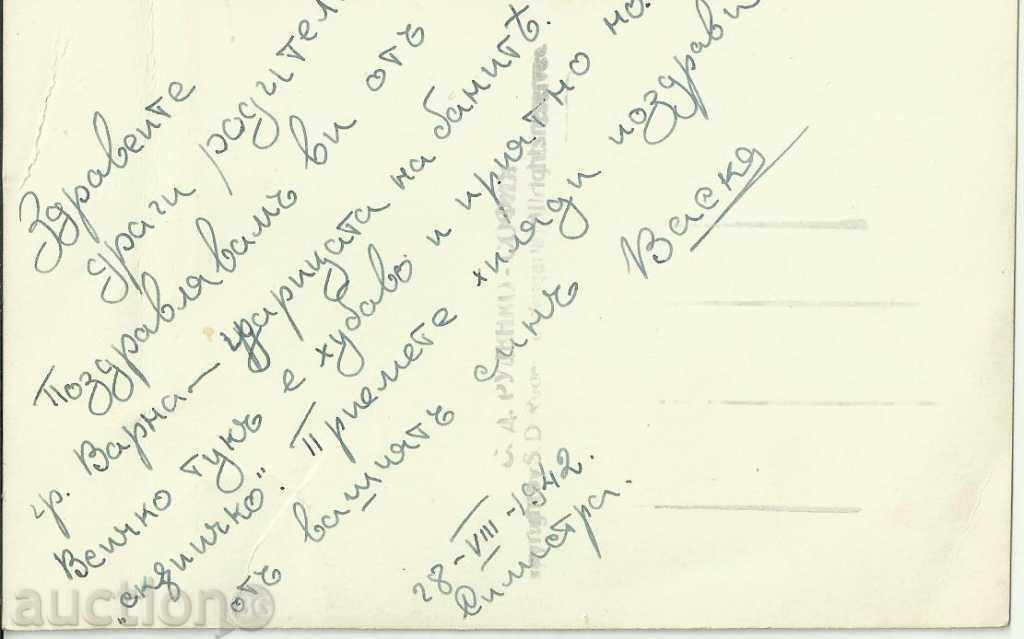 Здравейте
драги родители
Поздравлявамъ ви отъ
гр. Варна – царицата на банитѣ.
Всичко тукъ е хубаво и приятно но
„скъпичко“. Приемете хиляди поздрави
отъ вашиятъ синъ Васко
28-VIII-1942.
Силистра.
auction.BG